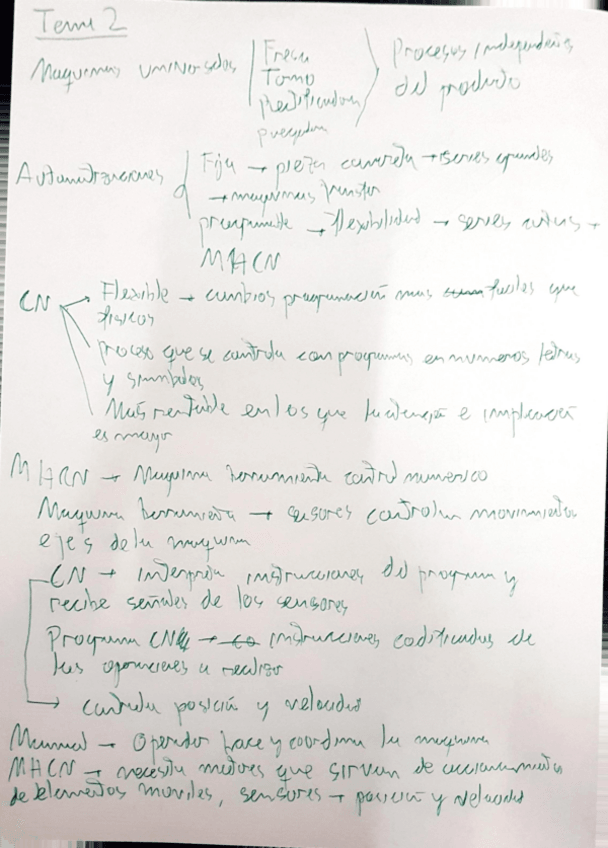 Tema 2
Maquinas universales Fresa Procesos independientes
Torno del producto
Rectificadora
Automatizaciones Fija → pieza concreta → series grandes
→ maquinas transfer
→ flexibilidad → series →
MHCN
CN Flexible → cambios programación mas faciles que
fisicos
proceso que se controla con programas en numeros letras
y simbolos
Mas rentable en los que
es mayor
→ Maquina herramienta control numerico
Maquina herramienta → sensores controlan movimientos
ejes de la maquina
CN → interpreta instrucciones del programa y
recibe señales de los sensores
Programa CN → instrucciones codificadas de
las operaciones a realizar
→ controla posición y velocidad
Manual → Operador hace y coordina la maquina
MHCN → necesita motores que sirvan de accionamiento
de elementos moviles, sensores → posición y velocidad